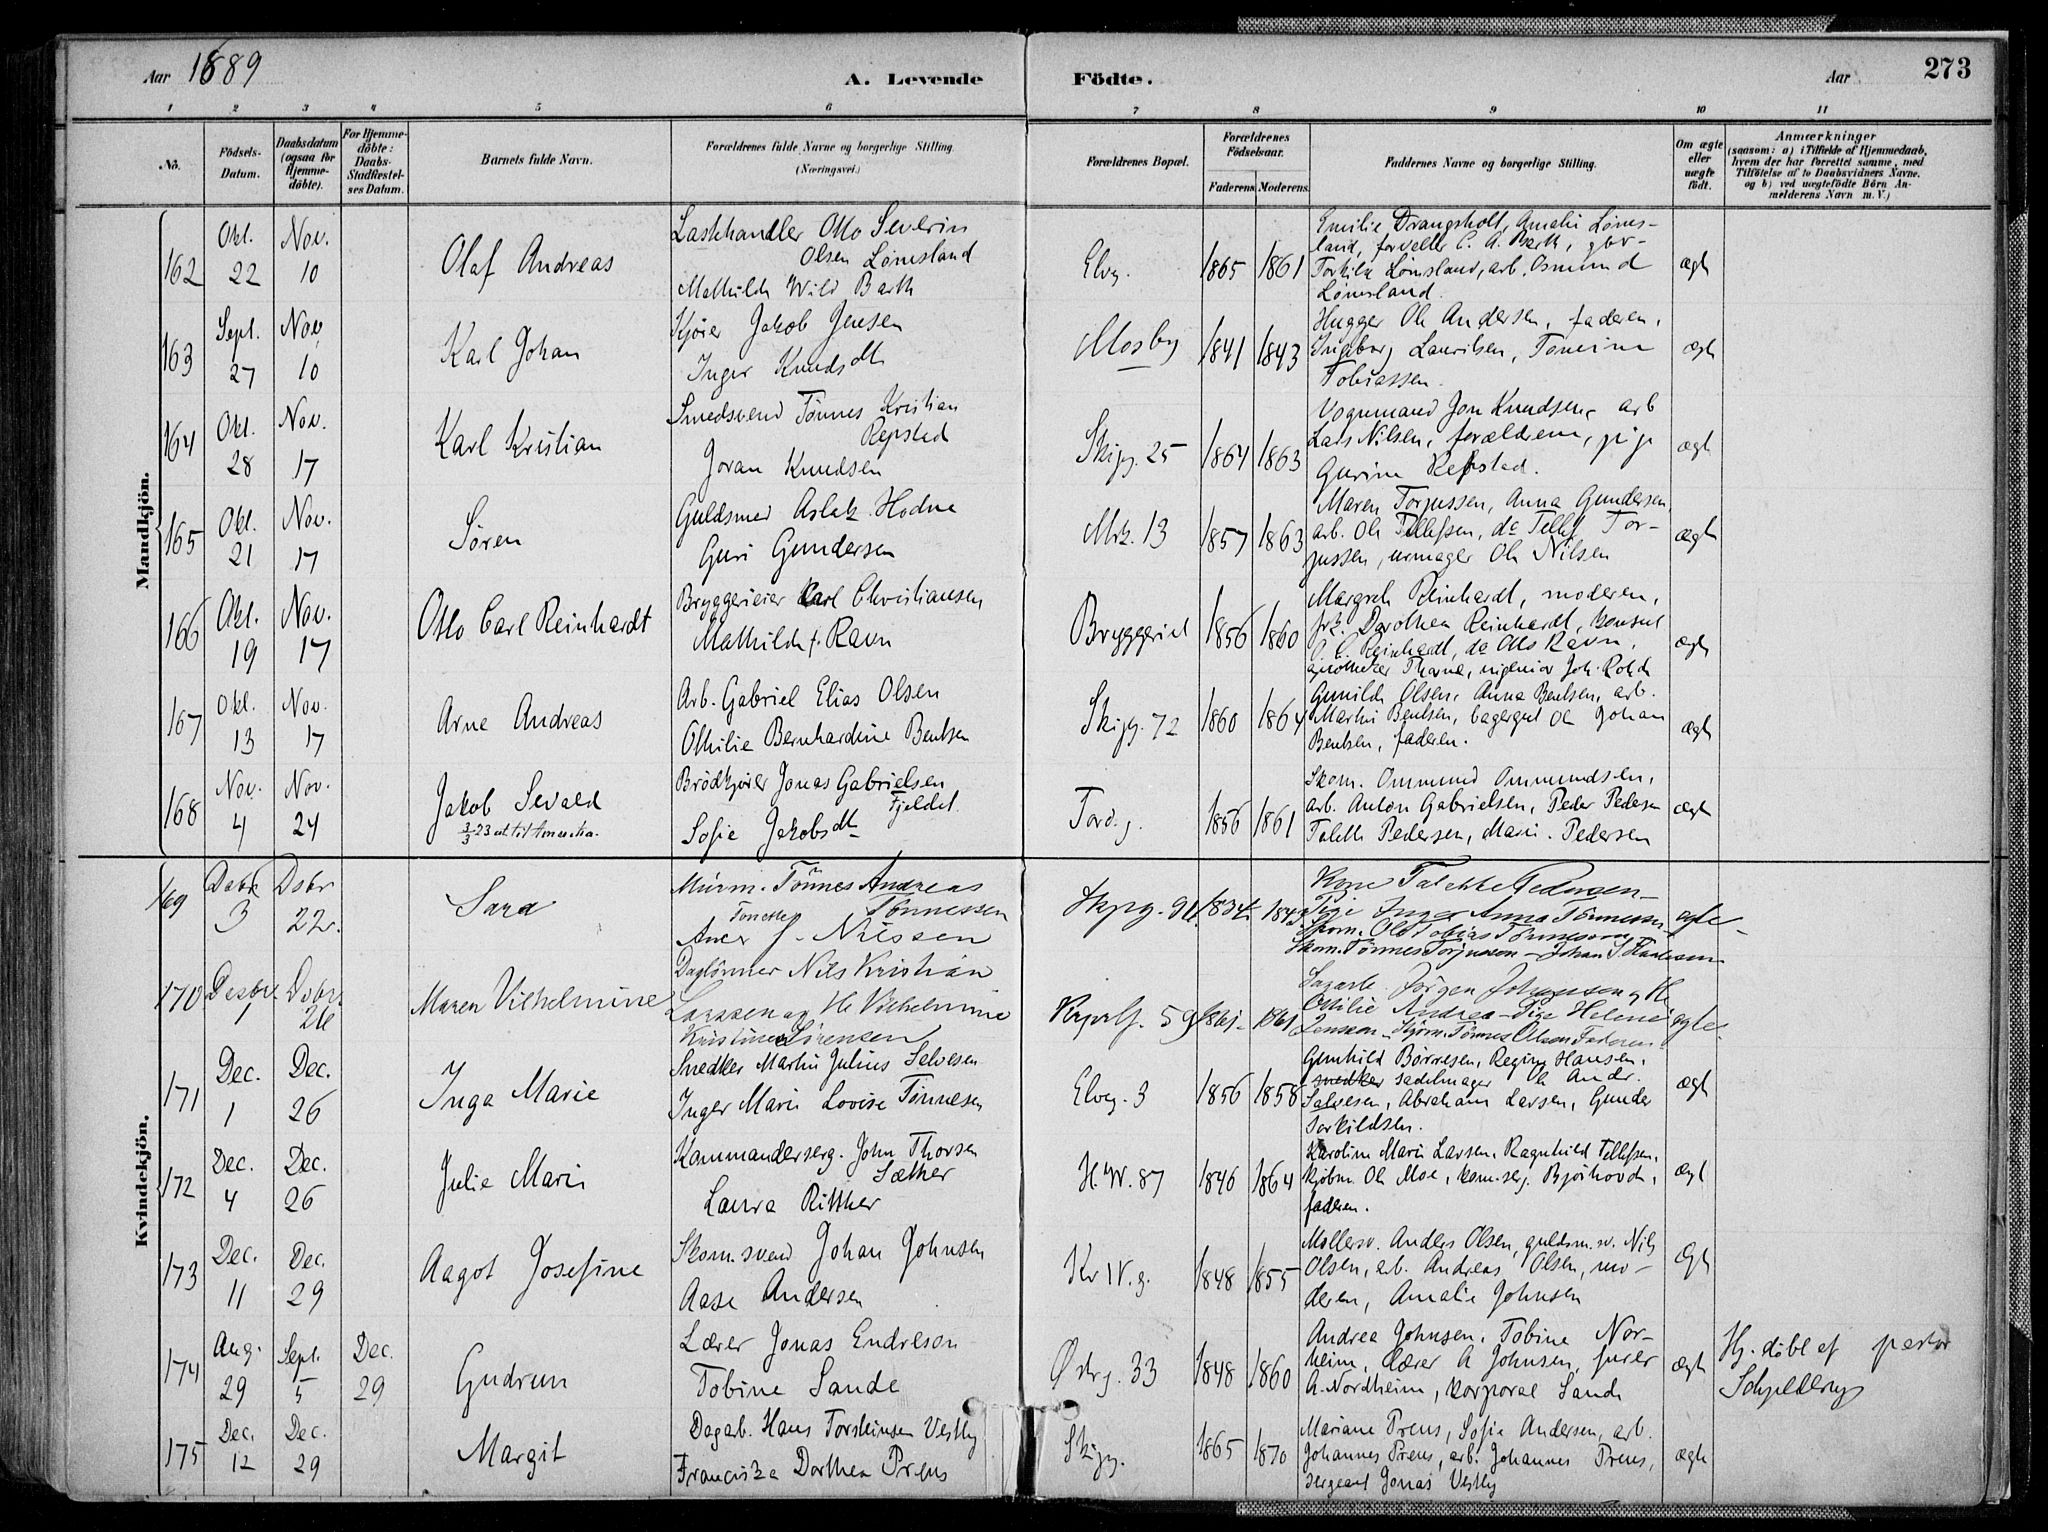 Aar 1889 A. Levende Födte. Aar 273
1 2 3 4 5 6 7 8 9 10 11
No.
Födsels-Datum.
Daabsdatum (ogsaa for Hjemmedöbte).
For Hjemmedöbte: Daabs-Stadfæstelses Datum.
Barnets fulde Navn.
Forældrenes fulde Navne og borgerlige Stilling.
(Næringsvei.)
Forældrenes Bopæl.
Forældrenes Födselsaar.
Faderens. Moderens.
Faddernes Navne og borgerlige Stilling.
Om ægte eller uægte födt.
Anmærkninger
(saasom: a) i Tilfælde af Hjemmedaab, hvem der har forrettet samme, med Tilföielse af to Daabsvidners Navne, og b) ved uægtefödte Börn Anmelderens Navn m. V.)
Mandkjön.
162 Okt. 22 Nov. 10 Olaf Andreas
Lasthandler Otto Severin
Olsen Lømsland
Mathilde Wild Barth
Elvg. 1865 1861
Emilie Drangsholt, Amalie Løms-
land, forvalter C. A. Barth, gbr.
Torkild Lømsland, arb. Osmund
Lømsland.
ægte
163 Sept. 27 Nov. 10 Karl Johan
Kjører Jakob Jensen
Inger Knudsdt
Mosby 1841 1843
Hugger Ole Andersen, faderen,
Ingeborg Lauritsen, Tomine
Tobiassen.
ægte
164 Okt. 28 Nov. 17 Karl Kristian
Smedsvend Tønnes Kristian
Repstad
Joran Knudsen
Skipg. 25 1864 1863
Vognmand Jon Knudsen, arb
Lars Nilsen, forældrene, pige
Gurine Repstad.
ægte
165 Okt. 21 Nov. 17 Søren
Guldsmed Aslak Hodne
Guri Gundersen
Mrk. 13 1857 1863
Maren Torjussen, Anna Gundersen,
arb. Ole Tellefsen, do Tellef Tor-
jussen, urmager Ole Nilsen
ægte
166 Okt. 19 Nov. 17 Otto Carl Reinhardt
Bryggerieier Carl Christiansen
Mathilde f. Ravn
Bryggeriet 1856 1860
Margreth Reinhardt, moderen,
frk. Dorothea Reinhardt, Konsul
O. C. Reinhardt, do Otto Ravn,
apotheker Thorne, ingeniør Joh.
ægte
167 Okt. 13 Nov. 17 Arne Andreas
Arb. Gabriel Elias Olsen
Othilie Bernhardine Bentsen
Skipg. 72 1860 1864
Gunilde Olsen, Anna Bentsen, arb.
Martin Bentsen, bagergut Ole Johan
Bentsen, faderen.
ægte
168 Nov. 4 Nov. 24 Jakob Sevald
3/3 23 att. til Amerika.
Brødkjører Jonas Gabrielsen
Fjeldet
Sofie Jakobsdt
Tordg. 1856 1861
Skom. Ommund Ommundsen,
arb. Anton Gabrielsen, Peder Pedersen
Taleth Pedersen, Marie Pedersen
ægte
Kvindekjön.
169 Dsbr 3 Dsbr 22. Sara
Murm. Tönnes Andreas
Tönnessen
f. Nilssen
1834 1843
Kone Talette Pedersen
Pige Inger Anna Tönnessen
Skom. Ole Tobias Tönnessen
Skom. Tönnes Törjussen - Johan
ægte
170 Desbr. 1 Dsbr. 26 Maren Vilhelmine
Daglönner Nils Kristian
Larssen og H. Vilhelmine
Kristine Sörensen
59 1861 1861
Jörgen Johansen og H.
Othilie Andrea - Pige Helene
Jensson - Tönnes Olson Faderen.
ægte.
171 Dec. 1 Dec. 26 Inga Marie
Snedker Martin Julius Selvesen
Inger Marie Lovise Tönnesen
Elveg. 3 1856 1858
Gunhild Børresen, Regine Hansen,
snedker sadelmager Ole Andr.
Salvesen, Abraham Larsen, Gunder
Torkildsen.
ægte
172 Dec. 4 Dec. 26 Julie Marie
Kommandersrg. John Thorsen
Sæther
Laura Ritther
H. W. 87 1846 1864
Karoline Marie Larsen, Ragnhild Tellefsen,
kjøbm. Ole Moe, kom.serg. Bjørhovde,
faderen.
ægte
173 Dec. 11 Dec. 29 Aagot Josefine
Skom.svend Johan Johnsen
Aase Andersen
Kr IV. g. 1848 1855
Møllersv. Anders Olsen, guldsm.sv. Nils
Olsen, arb. Andreas Olsen, mo-
deren, Amalie Johnsen
Ægte
174 Aug. 29 Sept. 5 Dec. 29 Gudrun
Lærer Jonas Endreson
Tobine Sande
Østrg. 33 1848 1860
Andrea Johnsen, Tobine Nor-
heim, lærer A Johnsen, furer
A. Nordheim, korporal Sande
ægte
Hj. döbt af pastor
Schjelderup
175 Dec. 12 Dec. 29 Margit
Dagarb. Hans Torsteinsen Vestly
Franciska Dorthea Preus
Skipg. 1865 1870
Mariane Preus, Sofie Andersen, arb.
Johannes Preus, arb. Johannes Preus,
sergeant Jonas Vestly
ægte